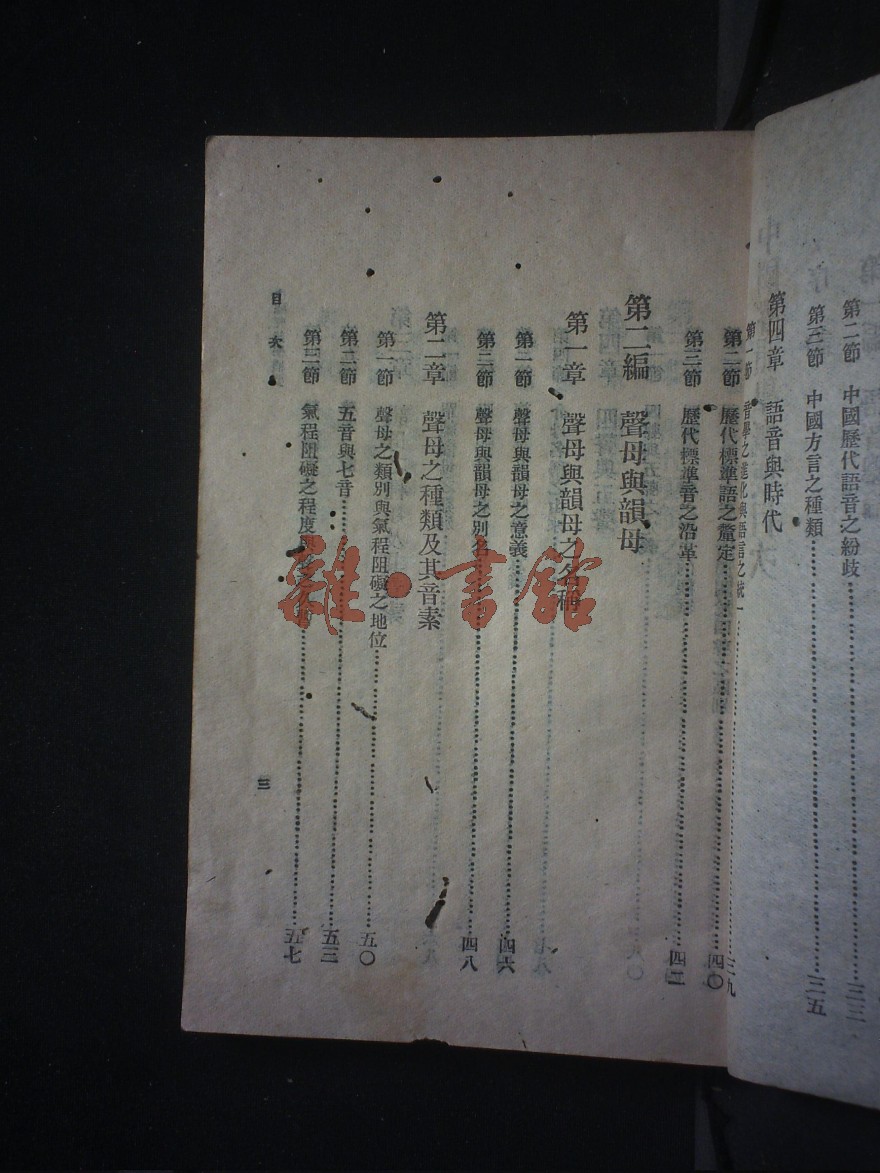 第二節 中國歷代語音之紛歧 三三
第三節 中國方言之種類 三五
第四章 語音與時代
第一節 音學之進化與語言之統一 三九
第二節 歷代標準語之釐定 四〇
第三節 歷代標準音之沿革 四二
第二編 聲母與韻母
第一章 聲母與韻母之名稱
第一節 聲母與韻母之意義 四六
第二節 聲母與韻母之別名 四八
第二章 聲母之種類及其音素
第一節 聲母之類別與氣程阻礙之地位 五〇
第二節 五音與七音 五三
第三節 氣程阻礙之程度與 五七
目次
三
雜·書館